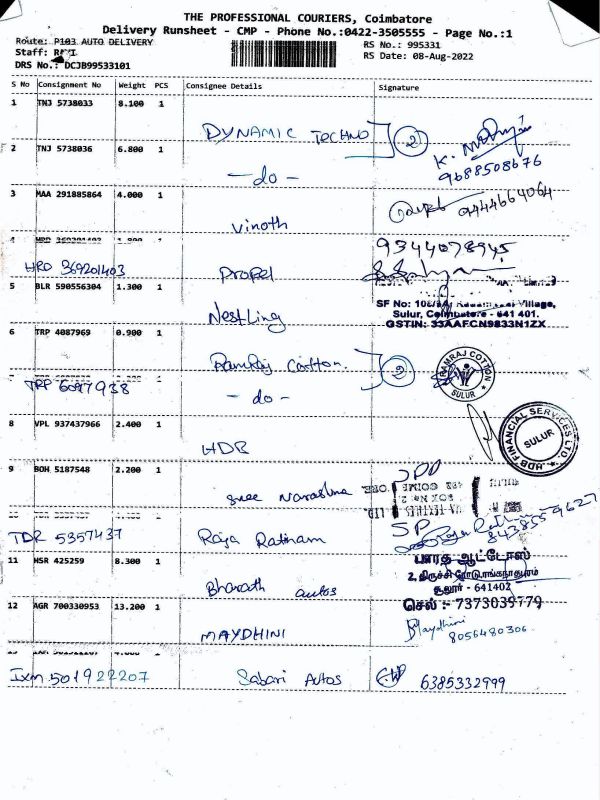 THE PROFESSIONAL COURIERS, Coimbatore
Delivery Runsheet - CMP - Phone No.:0422-3505555 - Page No.:1
Route: P103 AUTO DELIVERY
RS No.: 995331
Staff:
RS Date: 08-Aug-2022
DRS No.: DCJB99533101
S No Consignment No Weight PCS Consignee Details Signature
1 TNJ 5738033 8.100 1 DYNAMIC TECHNO 2
K.
9688508676
2 TNJ 5738036 6.800 1 -do-
3 MAA 291885864 4.000 1 Vinoth 9444664064
4 HRD 369201403 Propel 9344078945
5 BLR 590556304 1.300 1 Nestling
SF No: Village,
Sulur, Coimbatore - 641 401.
GSTIN: 33AAFCN9833N1ZX
6 TRP 4087969 0.900 1 Ramraj Cotton. 2
RAMRAJ COTTON SULUR
TRP 6097938 -do-
8 VPL 937437966 2.400 1 HDB
HDB FINANCIAL SERVICES LTD. SULUR
9 BOH 5187548 2.200 1 Sree
TDR 5357437 Raja Ratinam SP 8438559627
11 HSR 425259 8.300 1 Bharath autos
பாரத ஆட்டோஸ்
2, திருச்சி ரோடு,ரங்கநாதபுரம்
சூலூர் - 641402
செல் : 7373039779
12 AGR 700330953 13.200 1 MAYDHINI
Maydhini
8056480306
IXM 501922207 Sabari Autos 6385332999